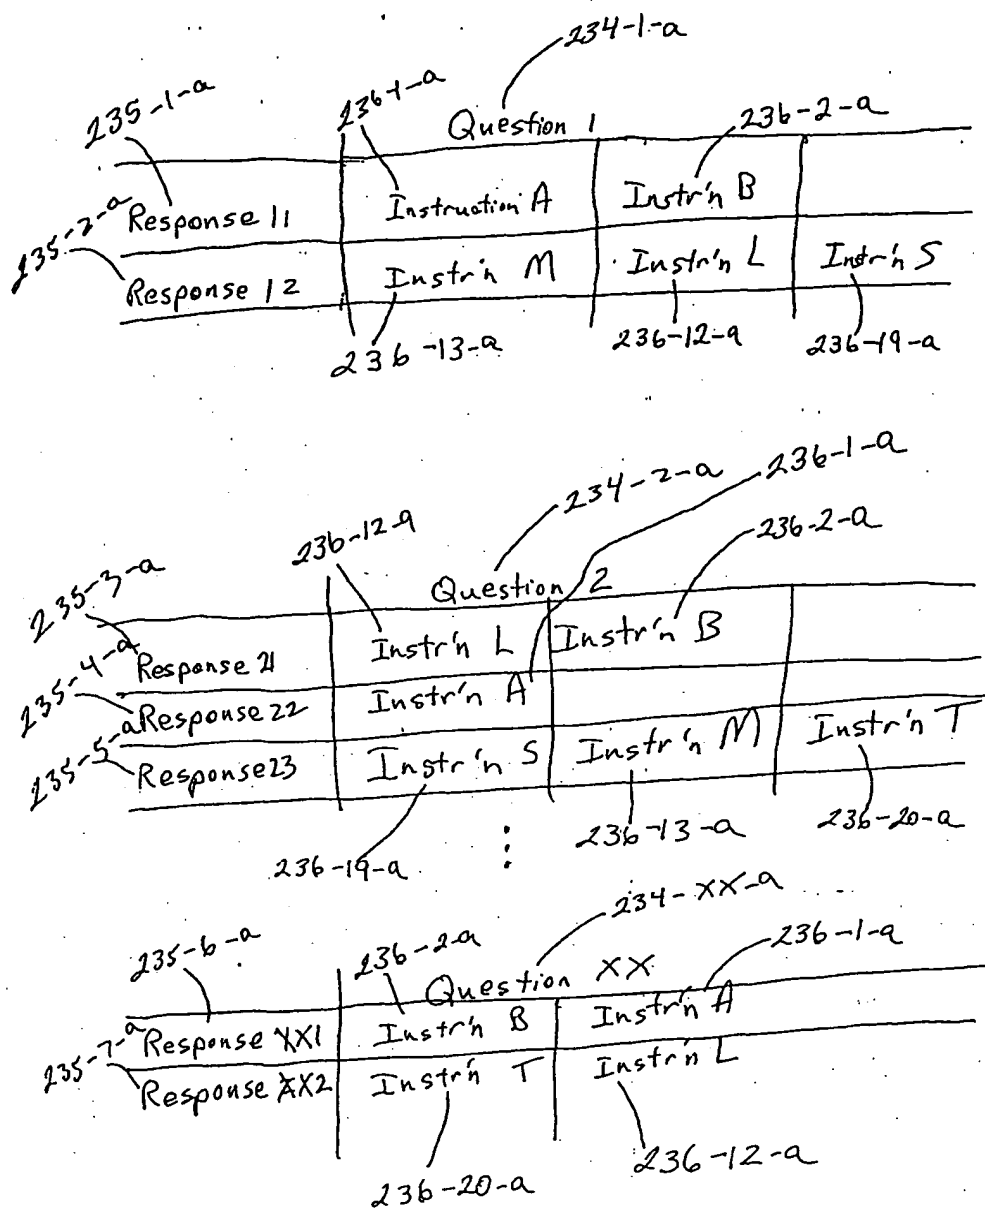 234-1-a
235-1-a 236-1-a Question 1 236-2-a
235-2-a Response 11 Instruction A Instr'n B
Response 12 Instr'n M Instr'n L Instr'n S
236-13-a 236-12-a 236-19-a
234-2-a 236-1-a
236-12-a 236-2-a
235-3-a Question 2
235-4-a Response 21 Instr'n L Instr'n B
Response 22 Instr'n A
235-5-a Response 23 Instr'n S Instr'n M Instr'n T
236-19-a 236-13-a 236-20-a
234-XX-a
235-6-a 236-2-a Question XX 236-1-a
235-7-a Response XX1 Instr'n B Instr'n A
Response XX2 Instr'n T Instr'n L
236-20-a 236-12-a